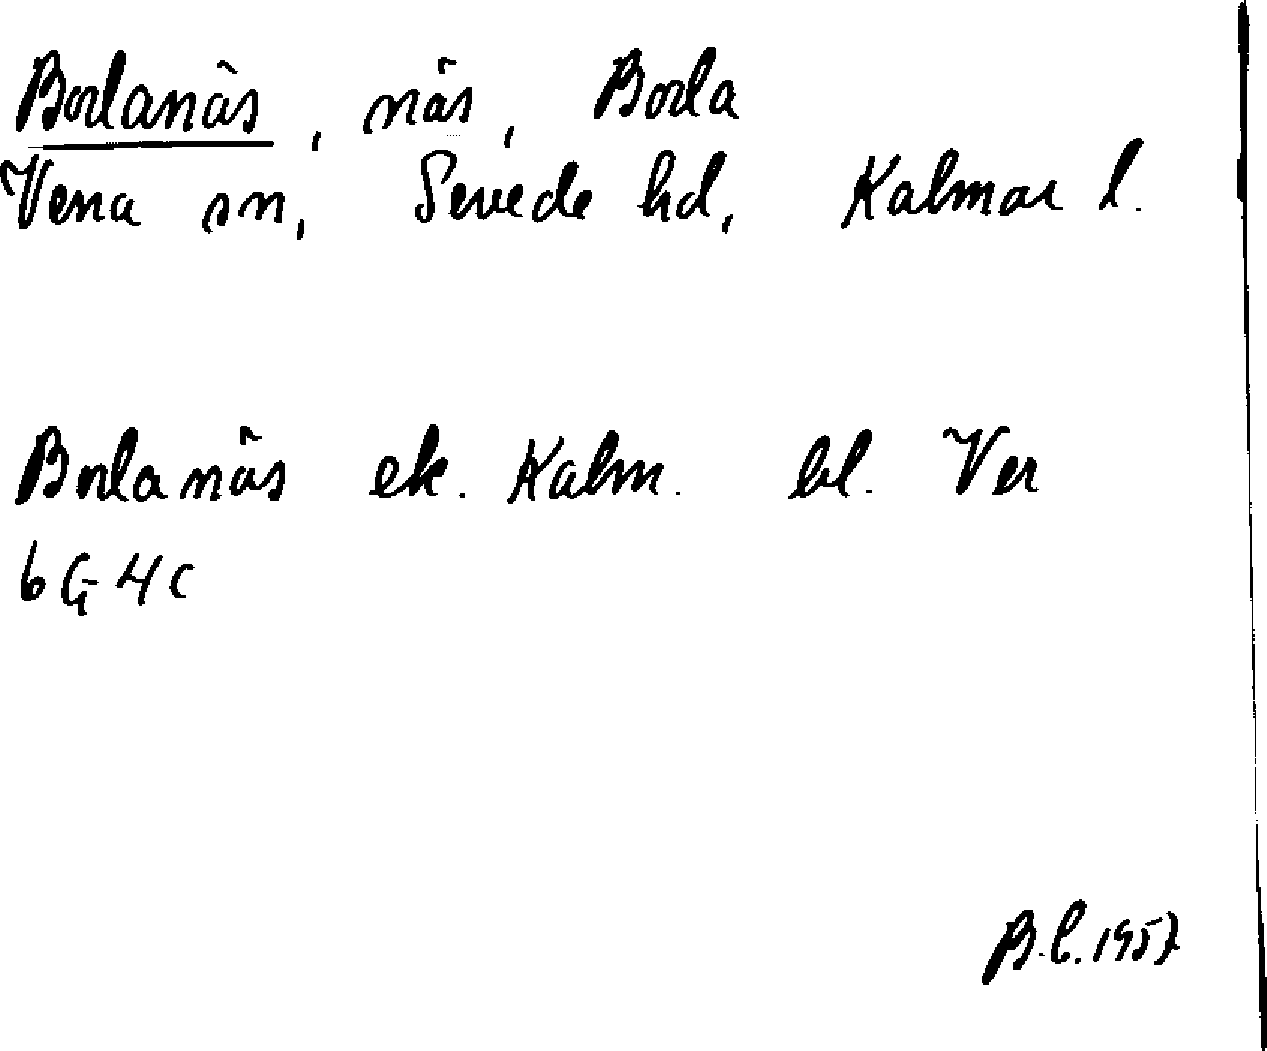 Borlanäs, näs, Borla
Vena sn, Sevede hd, Kalmar l.
Borlanäs ek. Kalm. bl. Ver
6G4c
B.C. 1957